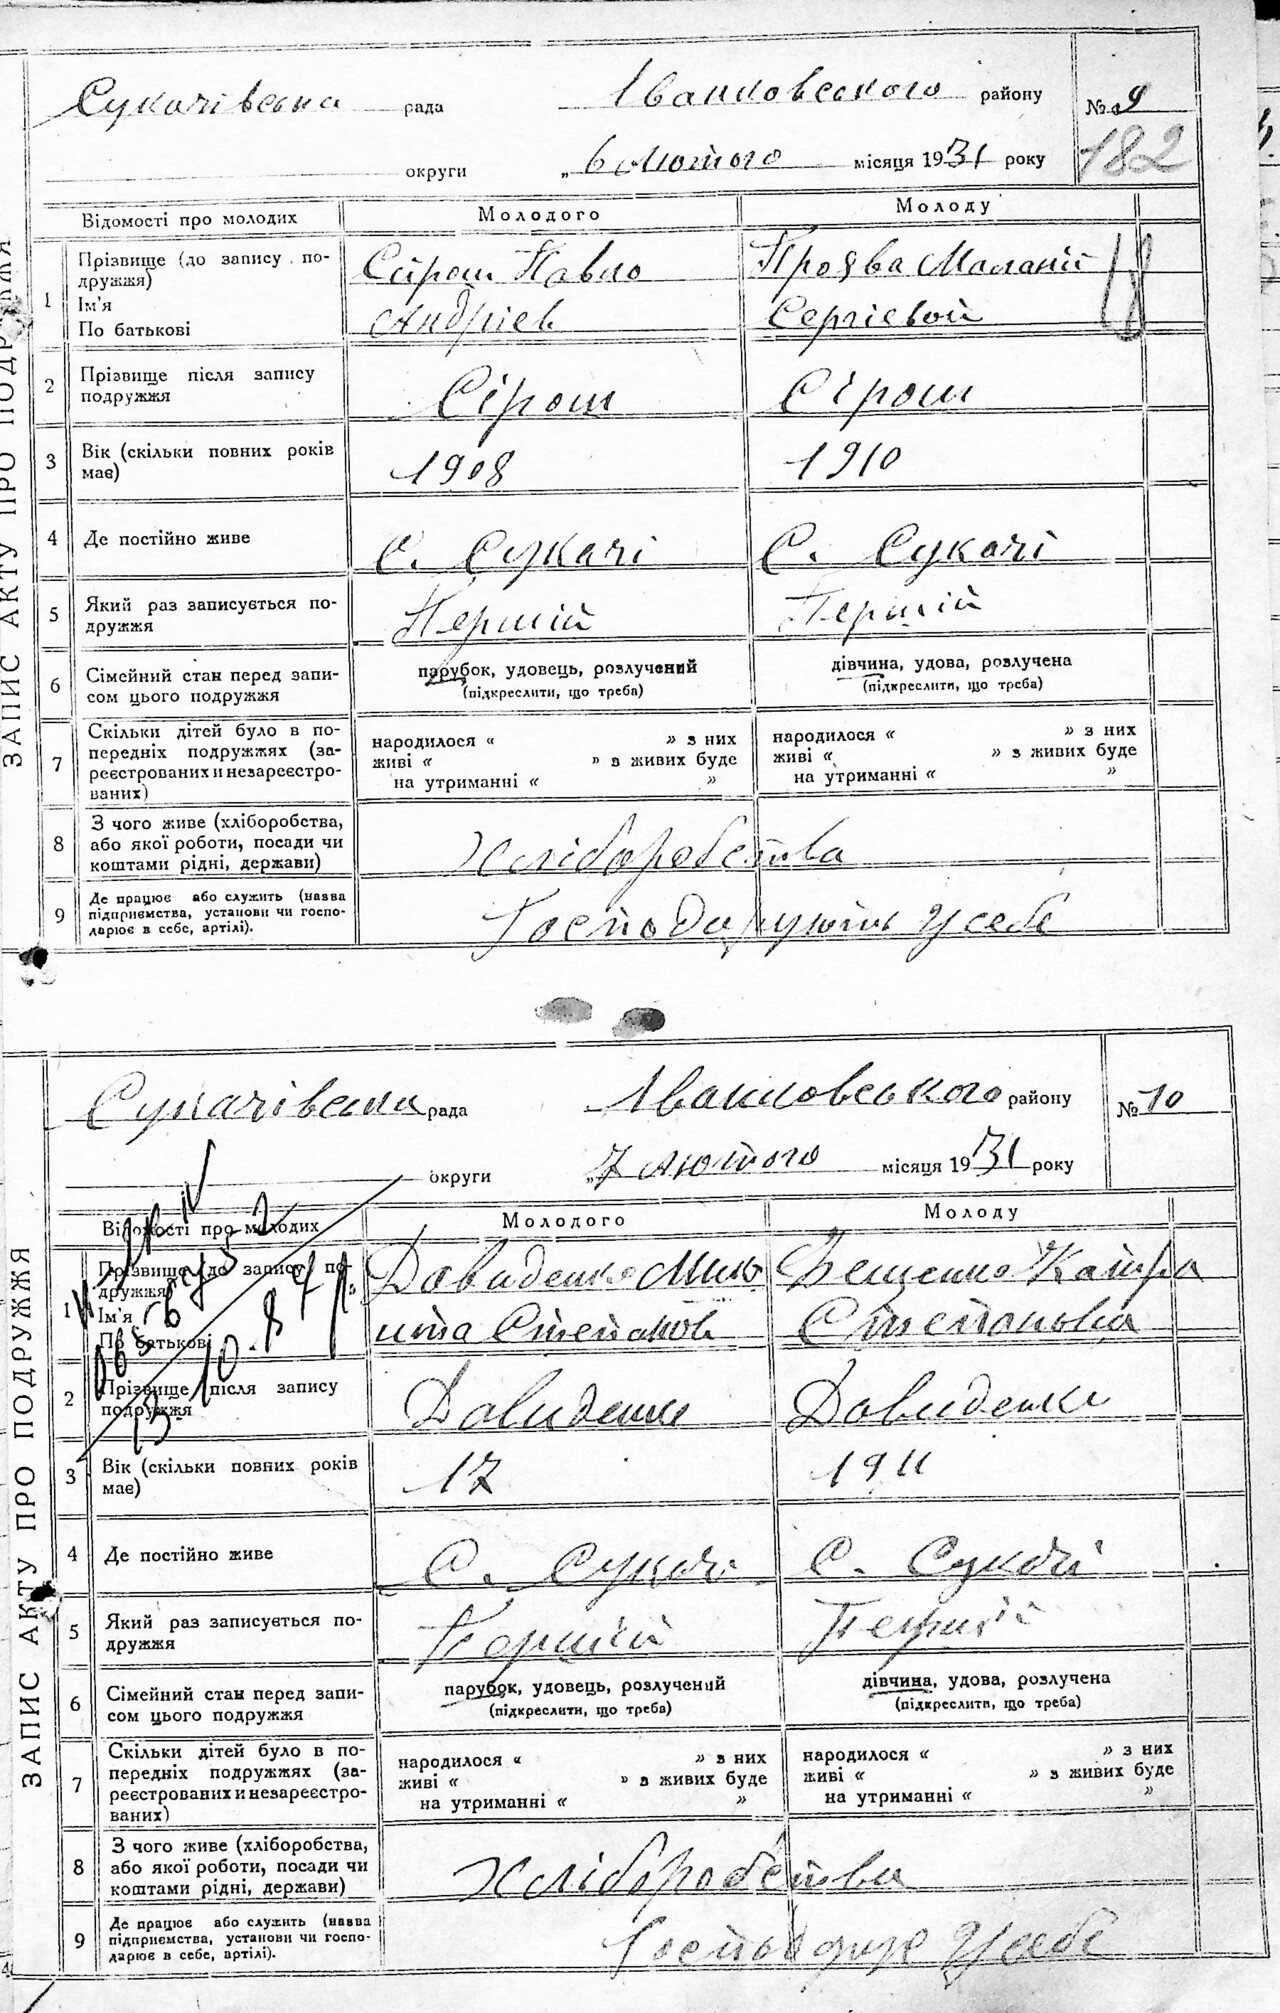 ЗАПИС АКТУ ПРО ПОДРУЖЖЯ
Сукачівська рада Іванковського району № 9
182
округи „6 Лютого місяця 1931 року
Відомості про молодих Молодого Молоду
1 Прізвище (до запису по-
дружжя)
Ім'я
По батькові
Сірош Павло
Андріев
Проява Маланій
Сергієвой
2 Прізвище після запису
подружжя
Сірош Сірош
3 Вік (скільки повних років
має)
1908 1910
4 Де постійно живе С. Сукачі С. Сукачі
5 Який раз записується по-
дружжя
Першій Першій
6 Сімейний стан перед запи-
сом цього подружжя
парубок, удовець, розлучений
(підкреслити, що треба)
дівчина, удова, розлучена
(підкреслити, що треба)
7 Скільки дітей було в по-
передніх подружжях (за-
реєстрованих и незареєстро-
ваних)
народилося “ ” з них
живі “ ” з живих буде
на утриманні “ ”
народилося “ ” з них
живі “ ” з живих буде
на утриманні “ ”
8 З чого живе (хліборобства,
або якої роботи, посади чи
коштами рідні, держави)
Хліборобства
9 Де працює або служить (назва
підприємства, установи чи госпо-
дарює в себе, артілі).
Господарують у себе
ЗАПИС АКТУ ПРО ПОДРУЖЖЯ
Сукачівська рада Іванковського району № 10
округи „7 лютого місяця 1931 року
Відомості про молодих Молодого Молоду
1 Прізвище (до запису по-
дружжя)
Ім'я
По батькові
Давиденко Мики
ита Степанов
Фещенко Катра
Степановна
2 Прізвище після запису
подружжя
Давиденко Давиденко
3 Вік (скільки повних років
має)
17 1911
4 Де постійно живе С. Сукачі С. Сукачі
5 Який раз записується по-
дружжя
Першій Першій
6 Сімейний стан перед запи-
сом цього подружжя
парубок, удовець, розлучений
(підкреслити, що треба)
дівчина, удова, розлучена
(підкреслити, що треба)
7 Скільки дітей було в по-
передніх подружжях (за-
реєстрованих и незареєстро-
ваних)
народилося “ ” з них
живі “ ” з живих буде
на утриманні “ ”
народилося “ ” з них
живі “ ” з живих буде
на утриманні “ ”
8 З чого живе (хліборобства,
або якої роботи, посади чи
коштами рідні, держави)
Хліборобства
9 Де працює або служить (назва
підприємства, установи чи госпо-
дарює в себе, артілі).
у себе